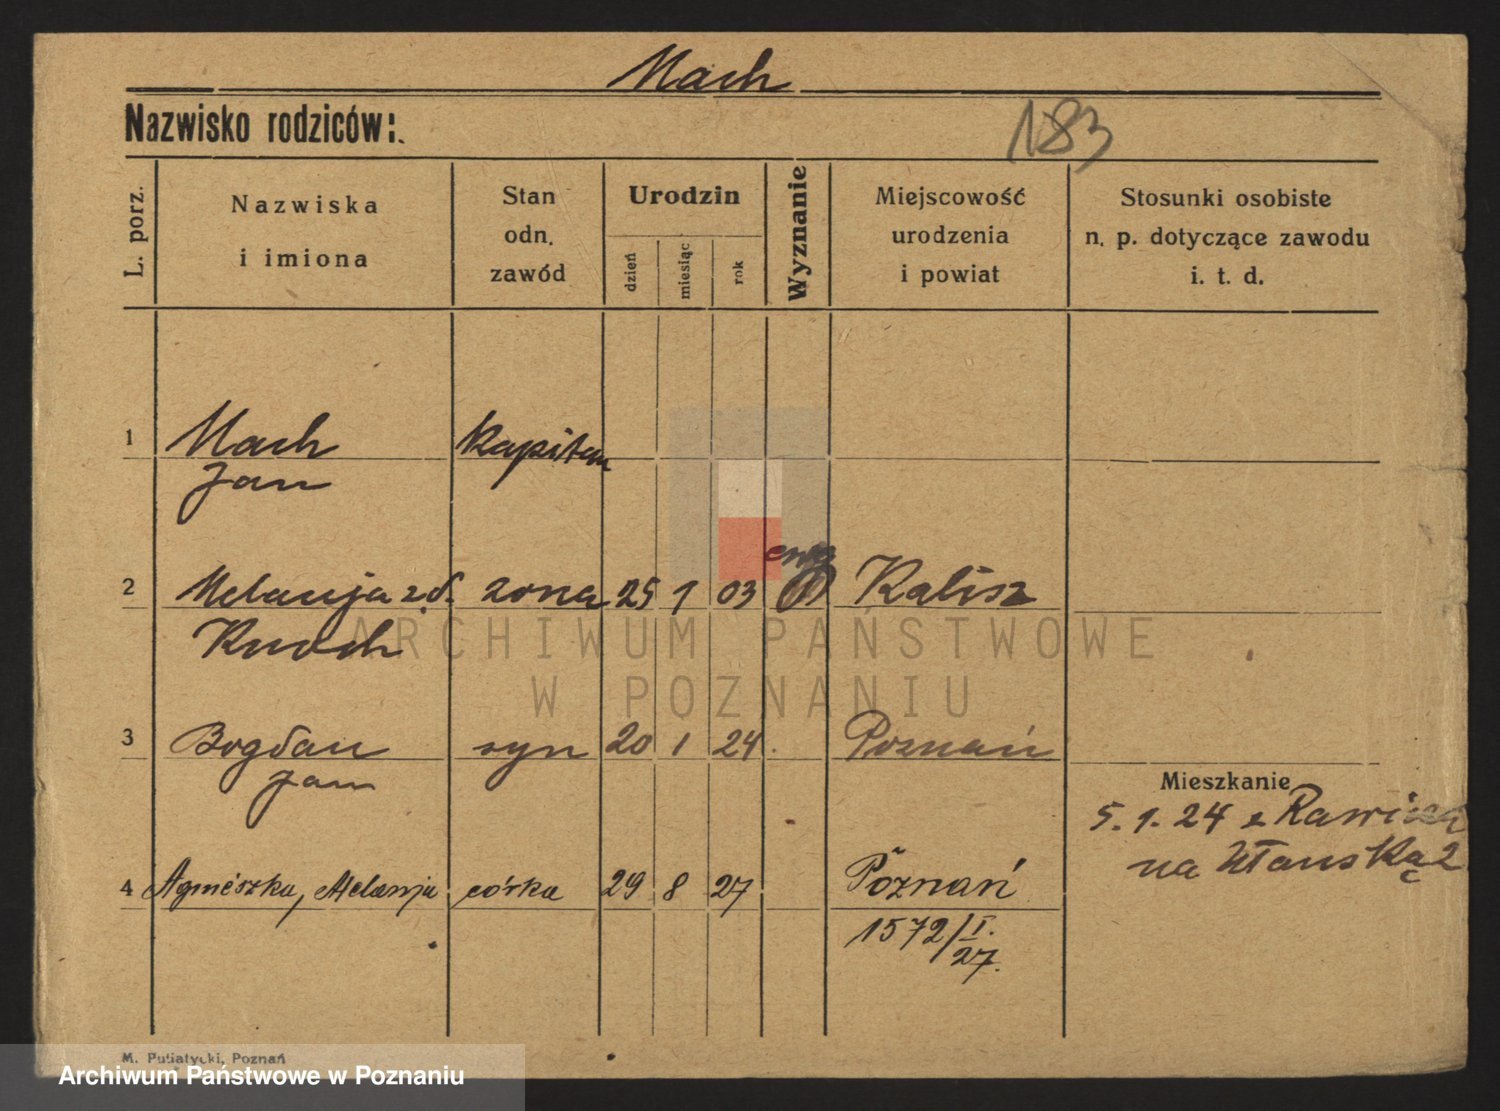 Mach
Nazwisko rodziców:
183
L. porz.
Nazwiska
i imiona
Stan
odn.
zawód
Urodzin
dzień
miesiąc
rok
Wyznanie
Miejscowość
urodzenia
i powiat
Stosunki osobiste
n. p. dotyczące zawodu
i. t. d.
1 Mach kapitan
Jan
2 Melanja z d. żona 25 1 03 ewg Kalisz
Knoch
3 Bogdan syn 20 1 24 Poznań
Jan
Mieszkanie
5.1.24 z Rawicza
na Ułańską 2
4 Agnieszka, Melanja córka 29 8 27 Poznań
1572/I.
27.
ARCHIWUM PAŃSTWOWE
W POZNANIU
M. Putiatycki, Poznań
Archiwum Państwowe w Poznaniu